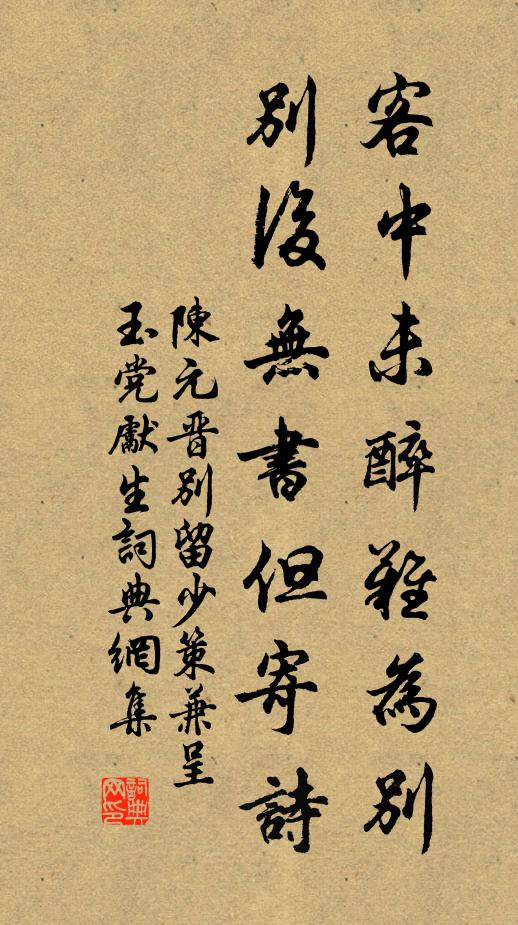 客中未醉難為別
別後無書但寄詩
陳元晉別留少策兼呈
玉堂獻生詞典網集
詞典网印